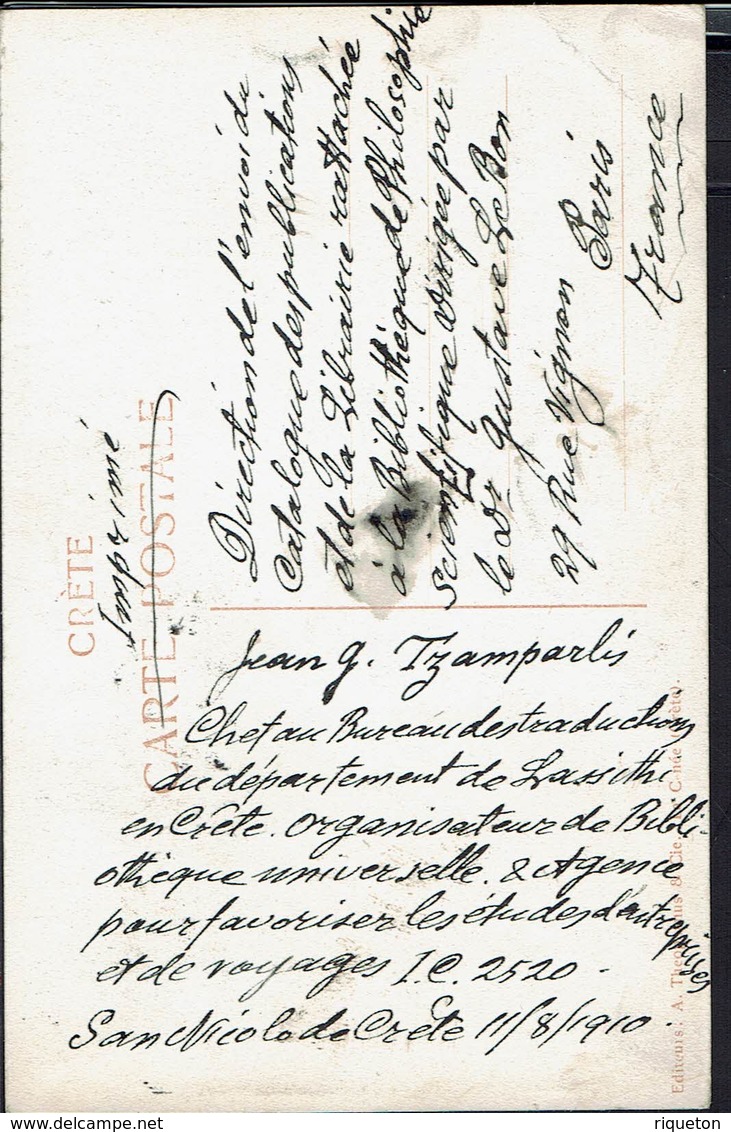 CRÈTE
CARTE POSTALE
Imprimé
Direction de l'envoi du
Catalogue des publications
et de la Librairie rattachée
à la Bibliothèque de Philosophie
scientifique dirigée par
le Dr Gustave Le Bon
29 Rue Vignon
Paris
France
Jean G. Tzamparlis
Chef au Bureau des traductions
du département de Lassithi
en Crête. Organisateur de Bibli-
othèque universelle. & Agence
pour favoriser les études d'entreprises
et de voyages I.C. 2520 -
San Nicolo de Crête 11/8/1910.
Editeurs: A. & Cie
riqueton